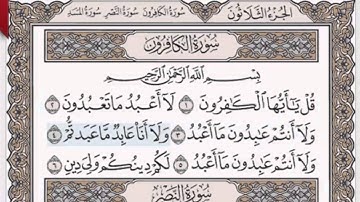 الجزء الثلاثون
سورة الكافرون سورة النصر سورة المسد
سورة الكافرون
بسم الله الرحمن الرحيم
قل يأيها الكفرون ١ لا أعبد ما تعبدون ٢
ولا أنتم عبدون ما أعبد ٣ ولا أنا عابد ما عبدتم ٤
ولا أنتم عبدون ما أعبد ٥ لكم دينكم ولي دين ٦
سورة النصر